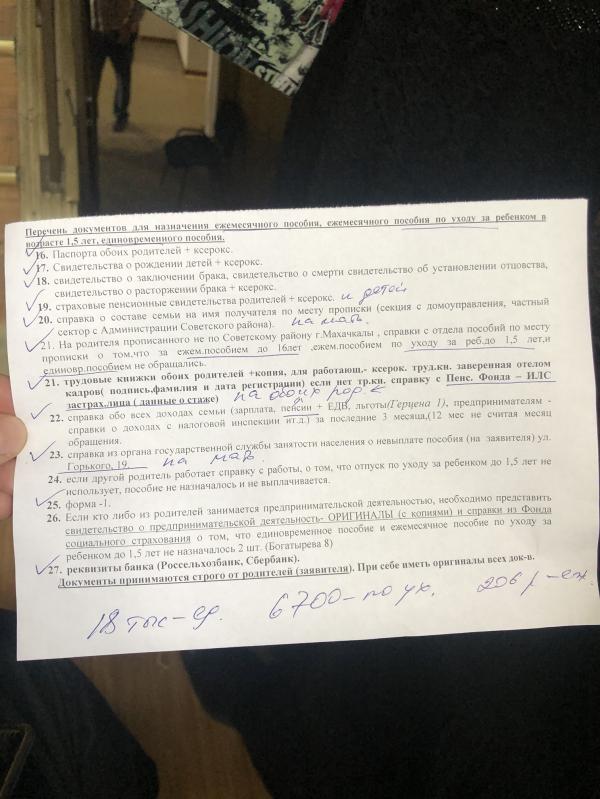 FASHION
STREET
Перечень документов для назначения ежемесячного пособия, ежемесячного пособия по уходу за ребенком в
возрасте 1,5 лет, единовременного пособия.
16. Паспорта обоих родителей + ксерокс.
17. Свидетельства о рождении детей + ксерокс.
18. свидетельство о заключении брака, свидетельство о смерти свидетельство об установлении отцовства,
свидетельство о расторжении брака + ксерокс.
19. страховые пенсионные свидетельства родителей + ксерокс. и детей
20. справка о составе семьи на имя получателя по месту прописки (секция с домоуправления, частный
сектор с Администрации Советского района). на мать.
21. На родителя прописанного не по Советскому району г.Махачкалы , справки с отдела пособий по месту
прописки о том.что за ежем.пособием до 16лет ,ежем.пособием по уходу за реб.до 1,5 лет,и
единовр.пособием не обращались.
21. трудовые книжки обоих родителей +копия, для работающ.- ксерок. труд.кн. заверенная отелом
кадров( подпись.фамилия и дата регистрации) если нет тр.кн. справку с Пенс. Фонда – ИЛС
застрах.лица ( данные о стаже) на обоих род.
22. справка обо всех доходах семьи (зарплата, пенсии + ЕДВ, льготы(Герцена 1), предпринимателям -
справки о доходах с налоговой инспекции ит.д.) за последние 3 месяца,(12 мес не считая месяц
обращения.
23. справка из органа государственной службы занятости населения о невыплате пособия (на заявителя) ул.
Горького, 19. на мат.
24. если другой родитель работает справку с работы, о том, что отпуск по уходу за ребенком до 1,5 лет не
использует, пособие не назначалось и не выплачивается.
25. форма -1.
26. Если кто либо из родителей занимается предпринимательской деятельностью, необходимо представить
свидетельство о предпринимательской деятельность- ОРИГИНАЛЫ (с копиями) и справки из Фонда
социального страхования о том, что единовременное пособие и ежемесячное пособие по уходу за
ребенком до 1,5 лет не назначалось 2 шт. (Богатырева 8)
27. реквизиты банка (Россельхозбанк, Сбербанк).
Документы принимаются строго от родителей (заявителя). При себе иметь оригиналы всех док-в.
18 тыс-ед. 6700-по ух. 206 р-еж.